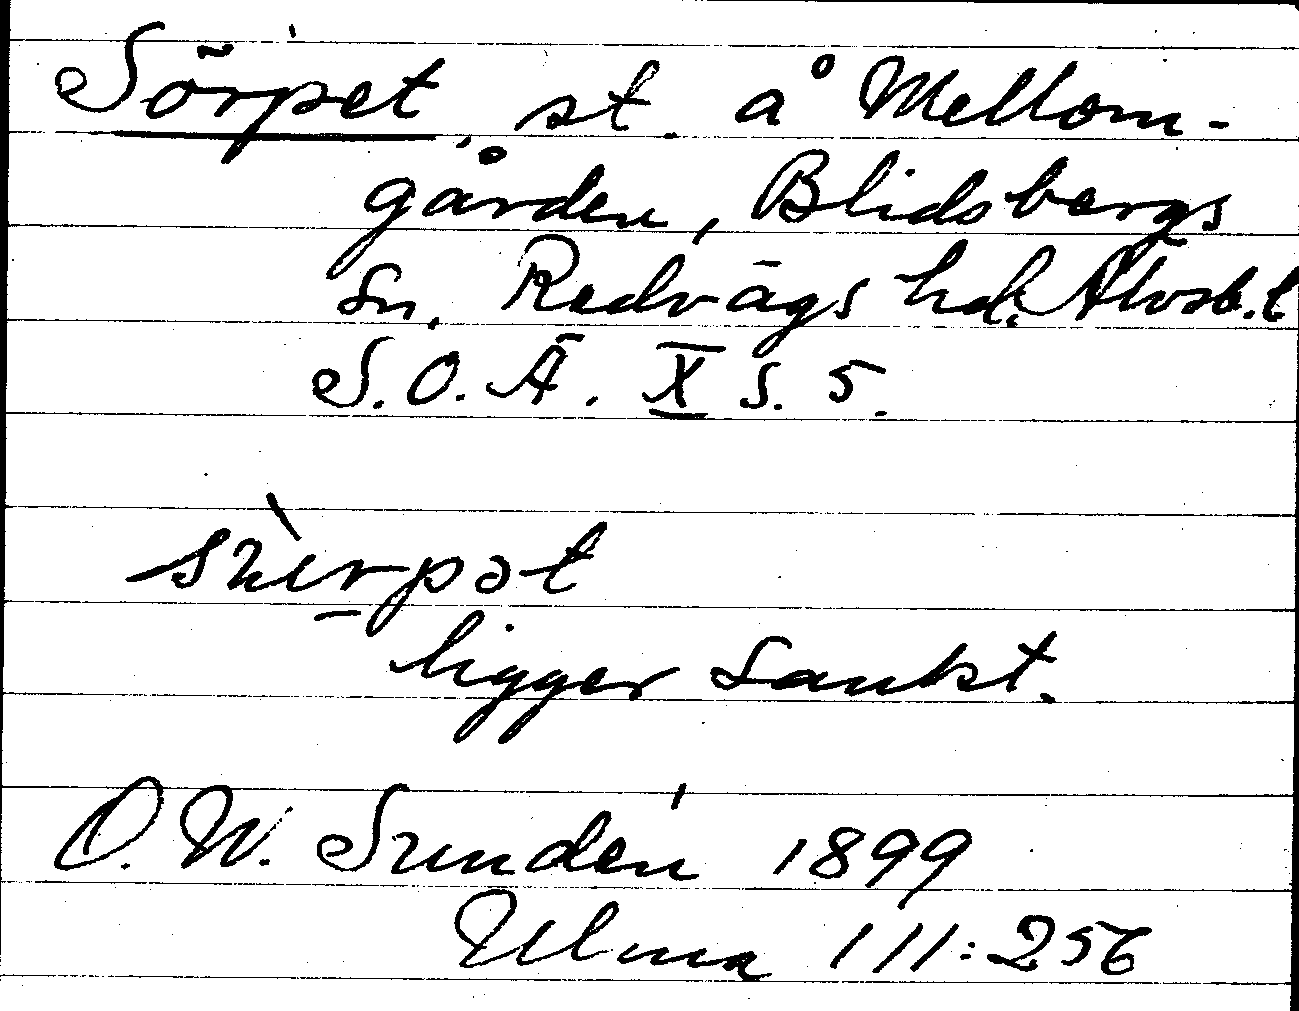 Sörpet, st. å Mellom-
gården, Blidsbergs
sn, Redvägs hd. Älvsb. l
S.O.Ä. X s. 5.
ligger sankt.
O. W. Sundén 1899
Ulma 111:256